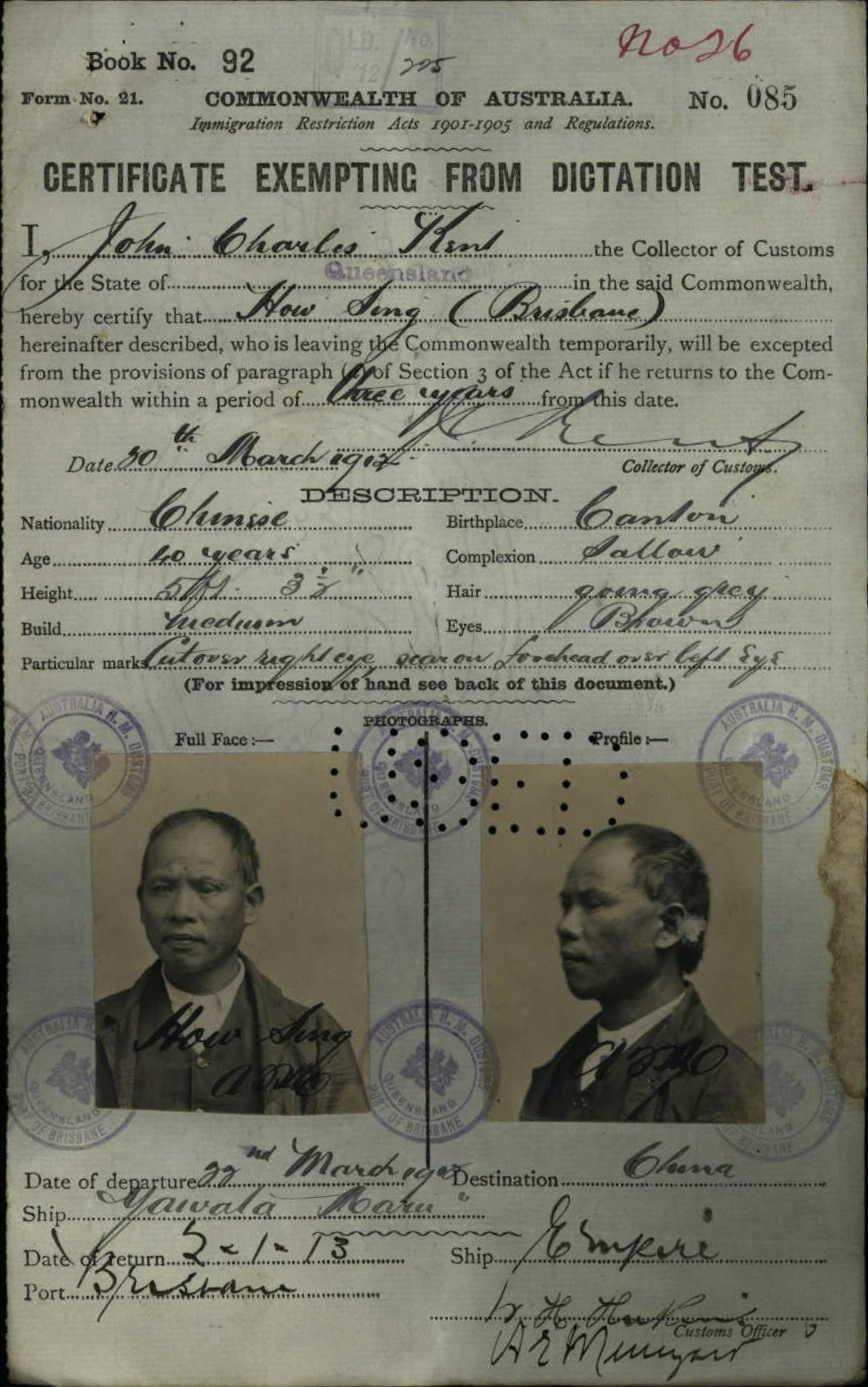 No 26
Book No. 92
225
Form No. 21. COMMONWEALTH OF AUSTRALIA. No. 085
Immigration Restriction Acts 1901-1905 and Regulations.
CERTIFICATE EXEMPTING FROM DICTATION TEST.
I, John Charles Kent the Collector of Customs
for the State of Queensland in the said Commonwealth,
hereby certify that How Sing (Brisbane)
hereinafter described, who is leaving the Commonwealth temporarily, will be excepted
from the provisions of paragraph of Section 3 of the Act if he returns to the Com-
monwealth within a period of three years from this date.
Date 30th March 1912 Collector of Customs.
DESCRIPTION.
Nationality Chinese Birthplace Canton
Age 40 years Complexion Sallow
Height 5ft 3 1/2" Hair going grey
Build Medium Eyes Brown
Particular marks Cut over right eye scar on forehead over left Eye
(For impression of hand see back of this document.)
PHOTOGRAPHS.
Full Face :— Profile :—
AUSTRALIA H. M. CUSTOMS QUEENSLAND PORT OF BRISBANE
How Sing
Date of departure 22nd March 1912 Destination China
Ship Yawata Maru
Date of return 2-1-13 Ship Empire
Port Brisbane
Customs Officer